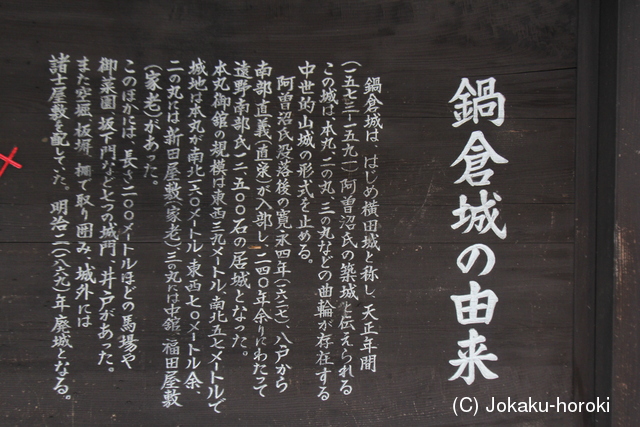 鍋倉城の由来
鍋倉城は、はじめ横田城と称し、天正年間
(一五七三-一五九一)阿曽沼氏の築城と伝えられる
この城は本丸、二の丸、三の丸などの曲輪が存在する
中世的山城の形式を止める。
阿曽沼氏没落後の寛永四年(一六二七)、八戸から
南部直義(直栄)が入部し二四〇年余りにわたって
遠野南部氏一二、五〇〇石の居城となった。
本丸御館の規模は東西三九メートル、南北五七メートルで
城地は本丸が南北一六〇メートル、東西七〇メートル余、
二の丸には新田屋敷(家老)三の丸には中館、福田屋敷
(家老)があった。
このほかは、長さ二〇〇メートルほどの馬場や
御菜園、坂下門など七つの城門、井戸があった。
また空堀、板塀、柵で取り囲み、城外には
諸士屋敷を配していた。明治二(一八六九)年廃城となる。
(C) Jokaku-horoki